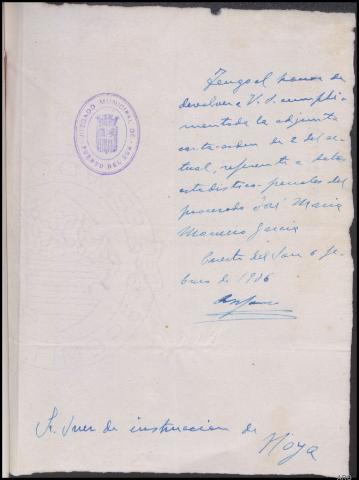 JUZGADO MUNICIPAL DE
PUERTO DEL SON
Tengo el honor de
devolver a V. S. cumpli-
mentada la adjunta
carta-orden de 2 del ac-
tual, referente a datos
estadistico-penales del
procesado José Maria
Garcia
Puerto del Son 6 fe-
brero de 1936
Sr. Juez de instruccion de
Noya